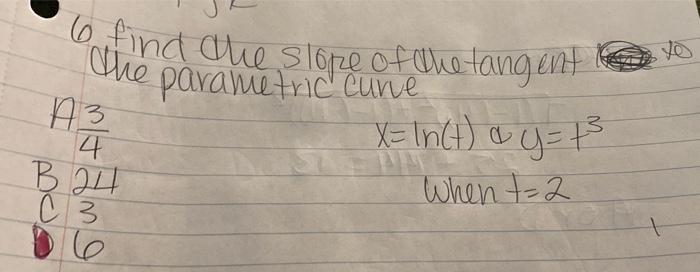 6 find the slope of the tangent to
the parametric curve
A 3/4
x=ln(t) & y=t³
B 24
when t=2
C 3
D 6